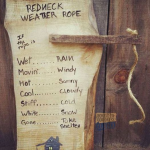 REDNECK
WEATHER ROPE
If
the
rope is
Wet... RAIN
Movin'. Windy
Hot... Sunny
Cool.... Cloudy
Stiff.... Cold
White... Snow
Gone... Take
Shelter